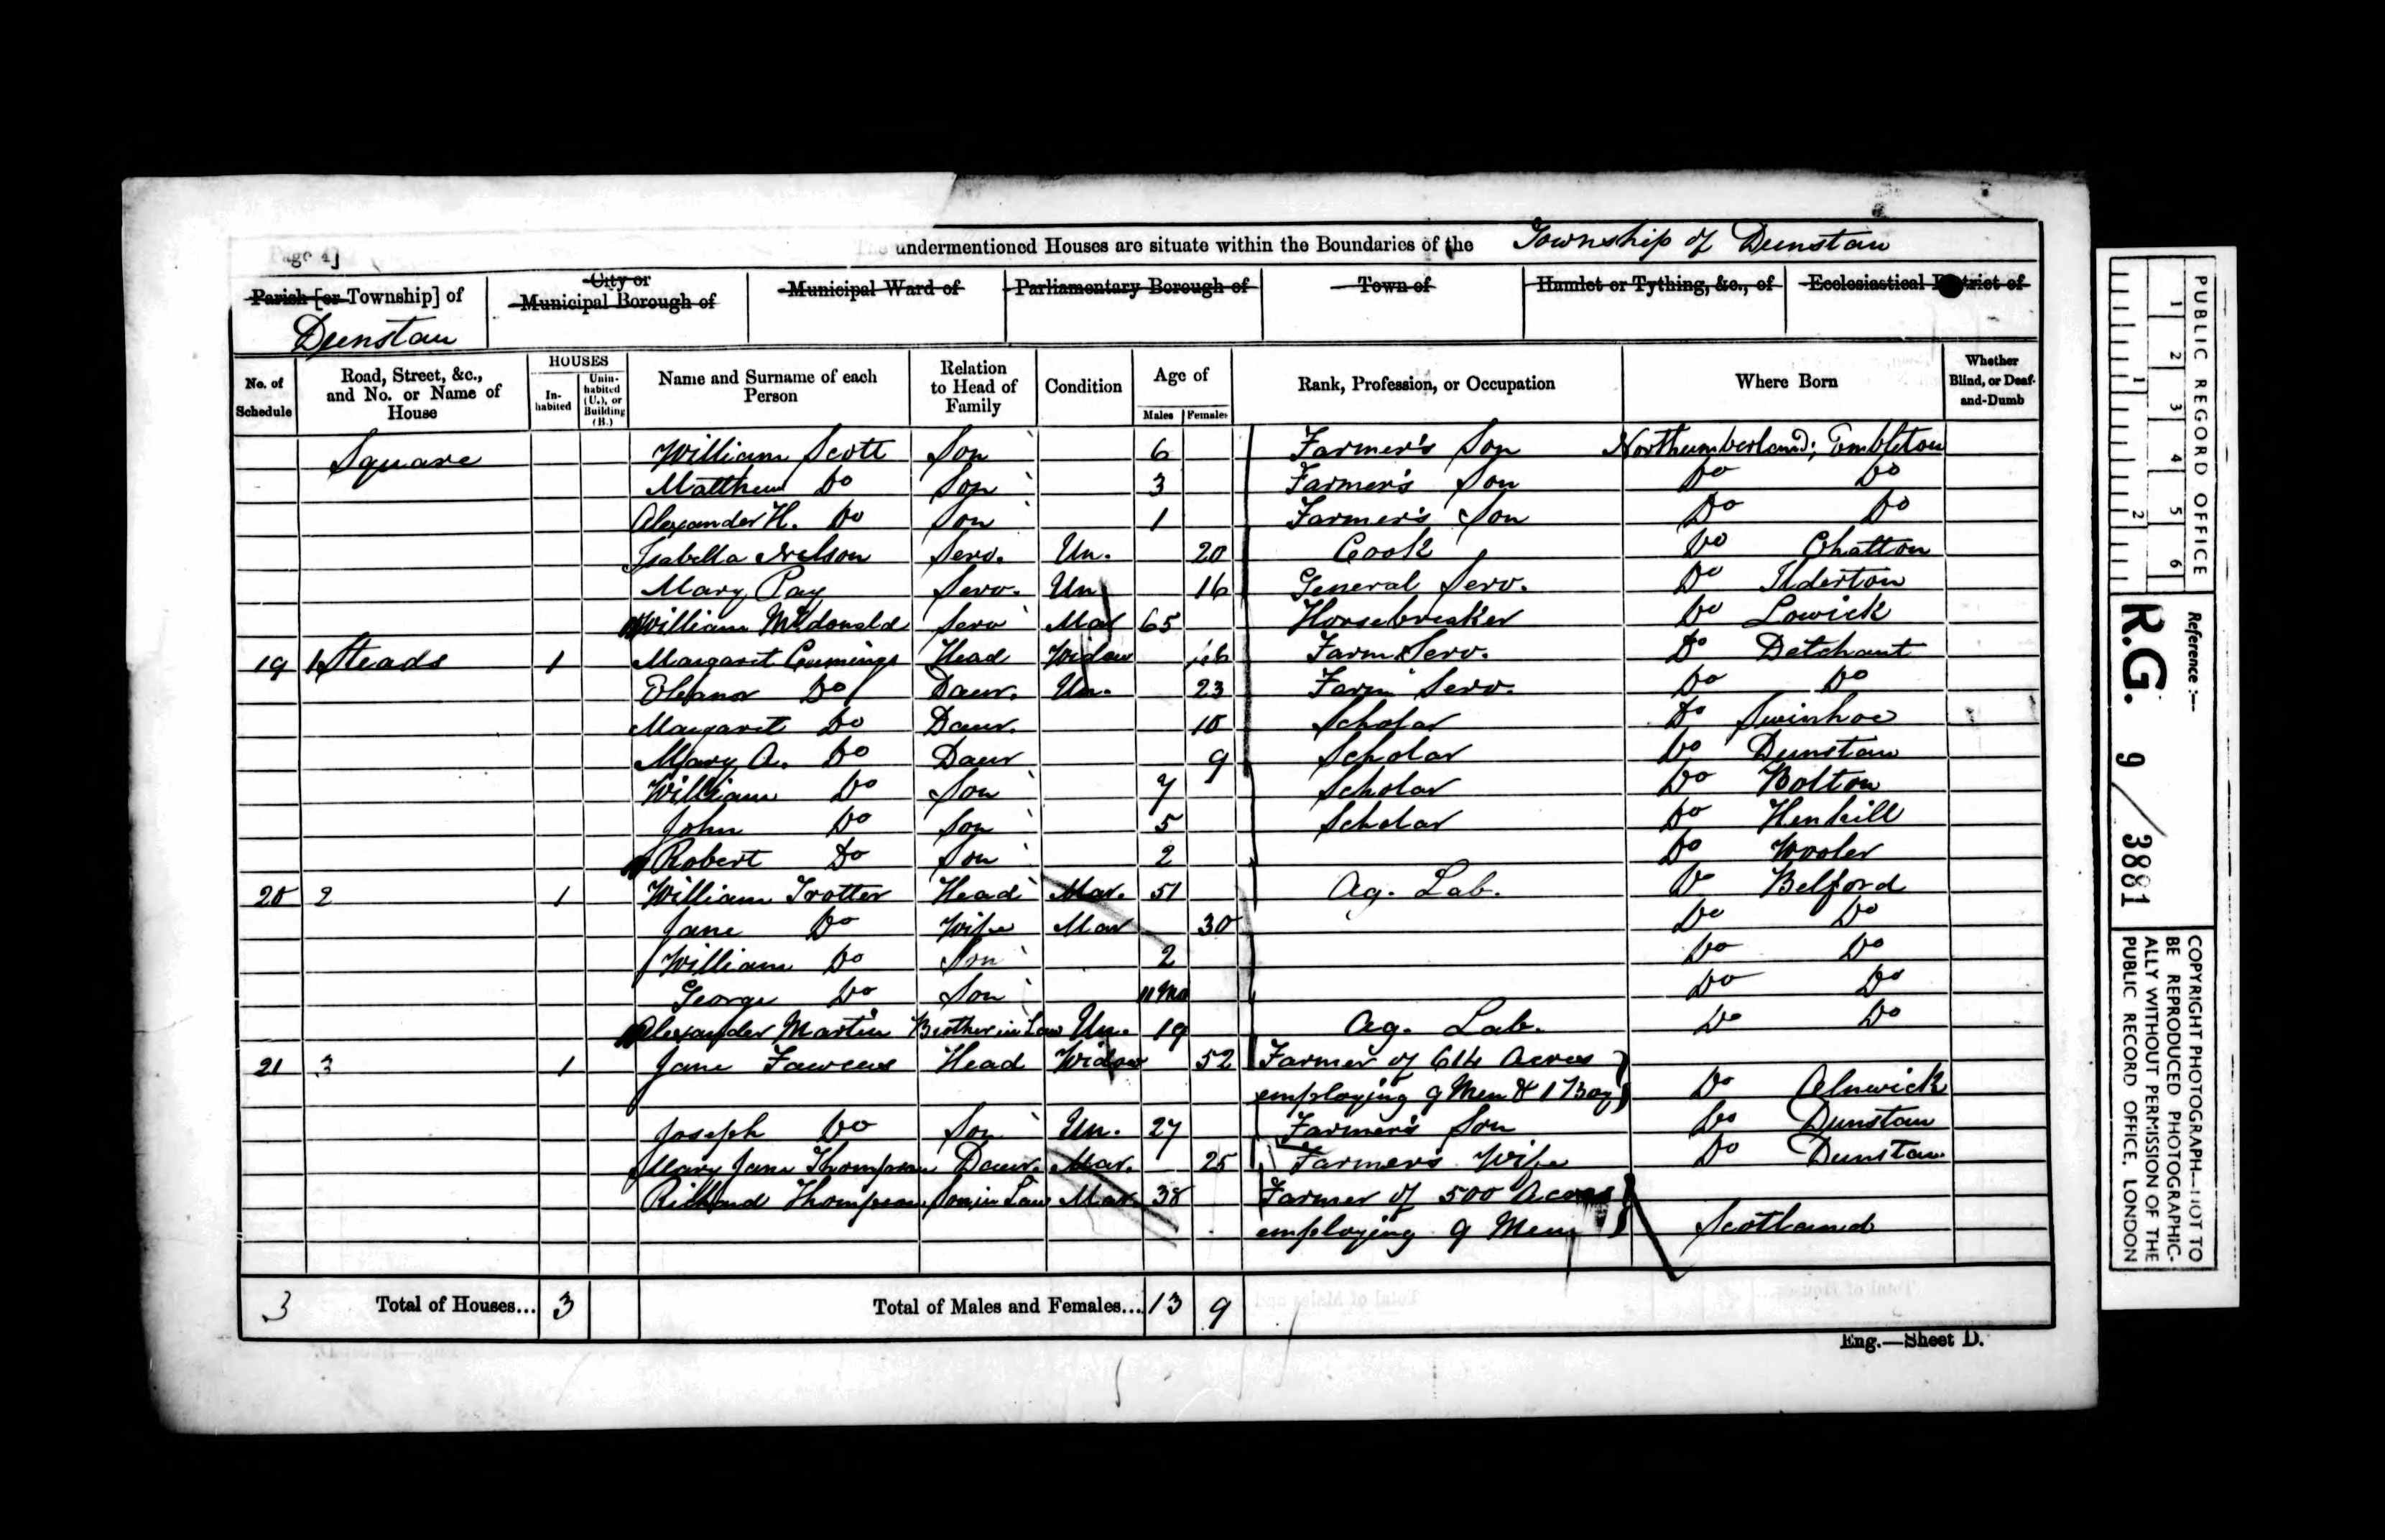 Page 4]
The undermentioned Houses are situate within the Boundaries of the Township of Dunstan
Parish [or Township] of Dunstan
City or Municipal Borough of
Municipal Ward of
Parliamentary Borough of
Town of
Hamlet or Tything, &c., of
Ecclesiastical District of
No. of Schedule
Road, Street, &c., and No. or Name of House
HOUSES
In-habited
Unin-habited (U.), or Building (B.)
Name and Surname of each Person
Relation to Head of Family
Condition
Age of
Males Females
Rank, Profession, or Occupation
Where Born
Whether Blind, or Deaf-and-Dumb
Square William Scott Son 6 Farmer's Son Northumberland; Embleton
Matthew Do Son 3 Farmer's Son Do Do
Alexander H. Do Son 1 Farmer's Son Do Do
Isabella Nelson Serv. Un. 20 Cook Do Chatton
Mary Serv. Un 16 General Serv. Do Ilderton
William McDonald Serv Mar 65 Horsebreaker Do Lowick
19 1 Steads 1 Margaret Cummings Head Widow Farm Serv. Do Detchant
Eleanor Do Daur. Un. 23 Farm Serv. Do Do
Margaret Do Daur. 10 Scholar Do Swinhoe
Mary A. Do Daur 9 Scholar Do Dunstan
William Do Son 7 Scholar Do Bolton
John Do Son 5 Scholar Do
Robert Do Son 2 Do Wooler
20 2 1 William Trotter Head Mar. 51 Ag. Lab. Do Belford
Jane Do Wife Mar 30 Do Do
William Do Son 2 Do Do
George Do Son 11 Mo Do Do
Alexander Martin Brother in Law Un. 19 Ag. Lab. Do Do
21 3 1 Jane Fawcus Head Widow 52 Farmer of 614 Acres
employing 9 Men & 1 Boy Do Alnwick
Joseph Do Son Un. 27 Farmer's Son Do Dunstan
Mary Jane Thompson Daur. Mar. 25 Farmer's Wife Do Dunstan
Richard Thompson Son in Law Mar. 38 Farmer of 500 Acres
employing 9 Men Scotland
3 Total of Houses... 3 Total of Males and Females... 13 9
Eng.—Sheet D.
PUBLIC RECORD OFFICE
1 2 3 4 5 6
1 2
Reference:—
R.G. 9/3881
COPYRIGHT PHOTOGRAPH—NOT TO
BE REPRODUCED PHOTOGRAPHIC-
ALLY WITHOUT PERMISSION OF THE
PUBLIC RECORD OFFICE, LONDON